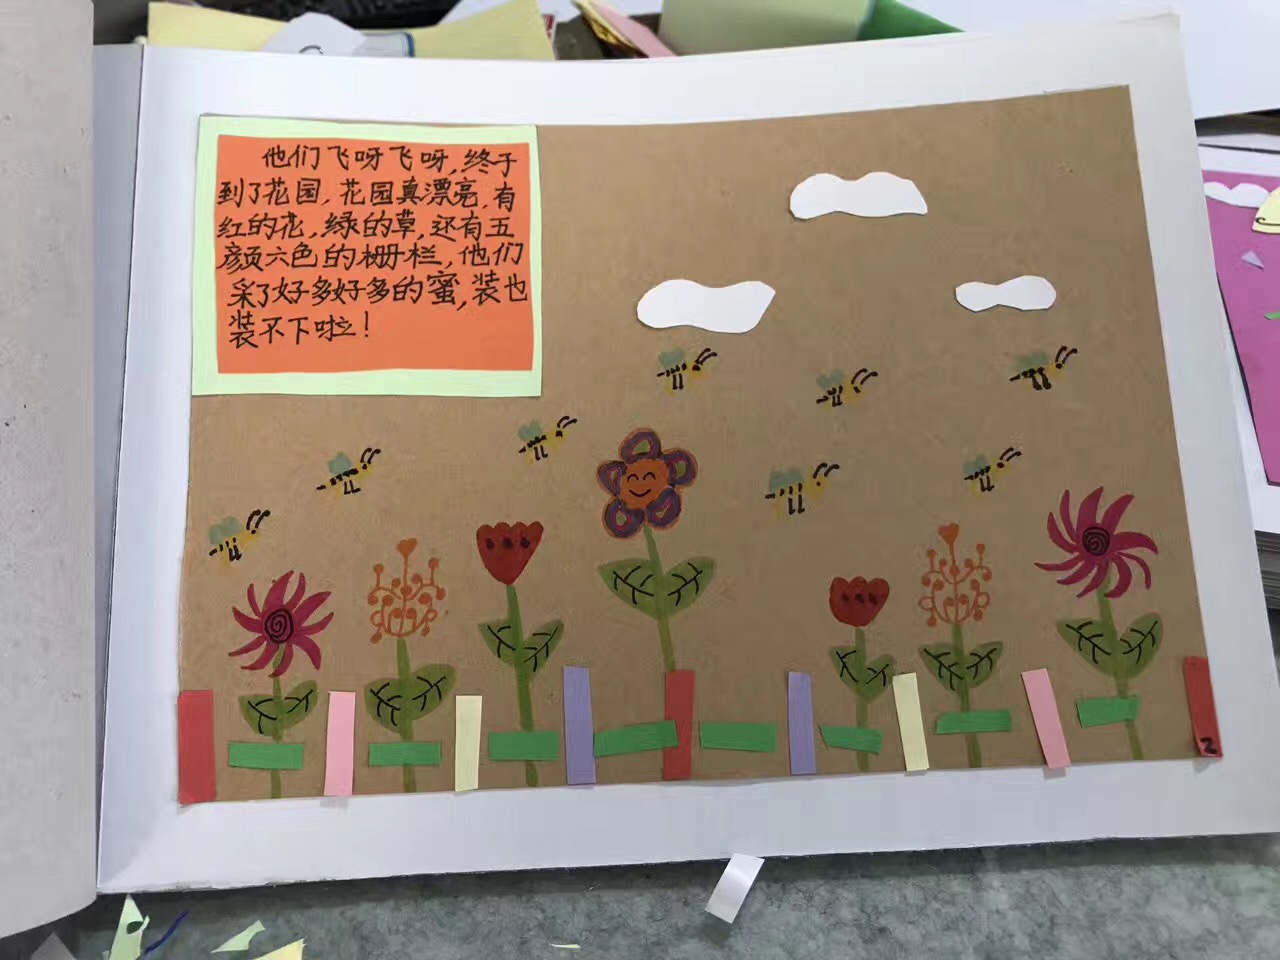 他们飞呀飞呀,终于
到了花园,花园真漂亮,有
红的花,绿的草,还有五
颜六色的栅栏,他们
采了好多好多的蜜,装也
装不下啦!
2